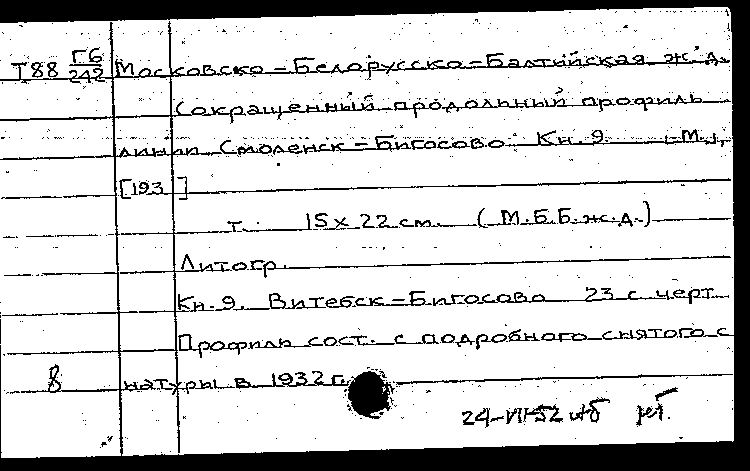 Т88 Г6/242 Московско-Белорусско-Балтийская ж.д.
Сокращенный продольный профиль
линии Смоленск-Бигосово. Кн. 9. М.,
[193 ]
т. 15х22 см. (М.Б.Б.ж.д.)
Литогр.
Кн. 9. Витебск-Бигосово 23 с черт
Профиль сост. с подробного снятого с
8 натуры в 1932 г.
24-VII-52